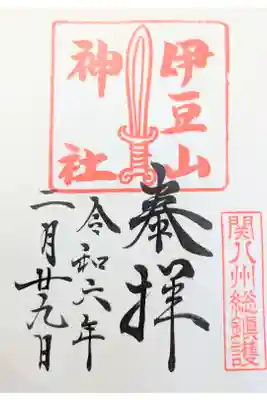 伊豆山
神社
関八州総鎮護
奉拝
令和六年
二月廿九日